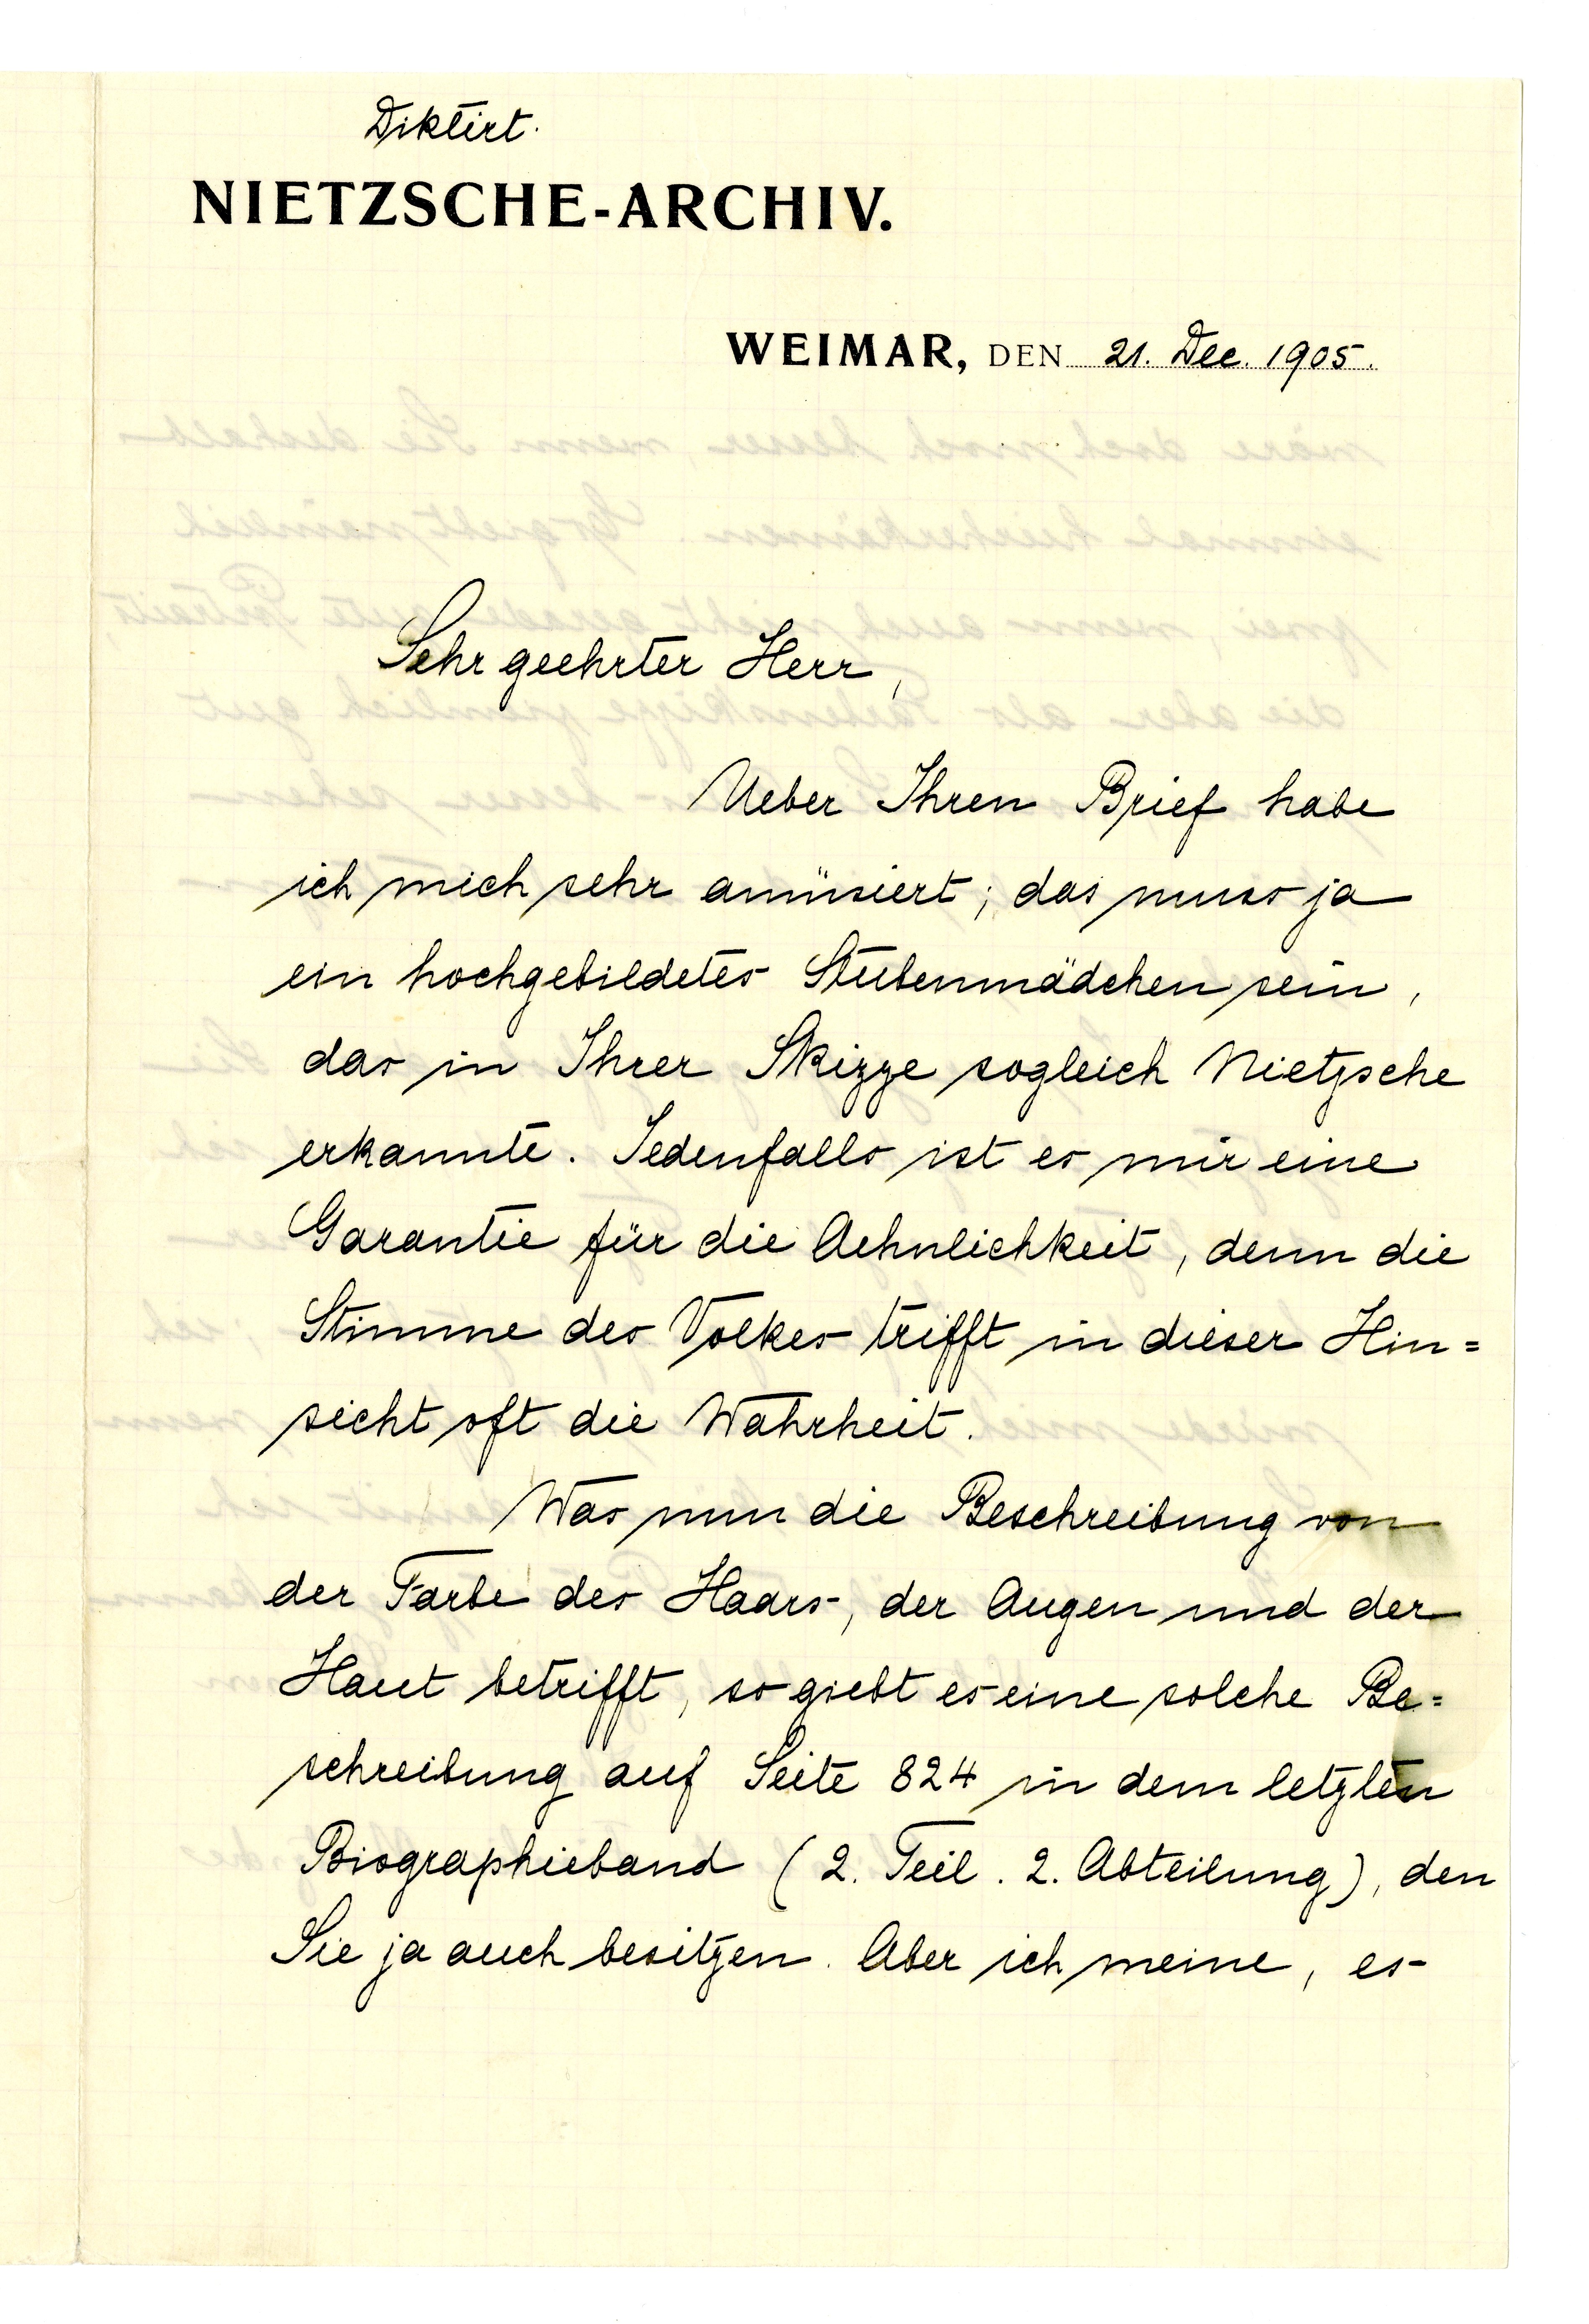 Diktirt.
NIETZSCHE-ARCHIV.
WEIMAR, DEN 21. Dec. 1905.
Sehr geehrter Herr,
Ueber Ihren Brief habe
ich mich sehr amüsiert; das muss ja
ein hochgebildetes Stubenmädchen sein,
das in Ihrer Skizze sogleich Nietzsche
erkannte. Jedenfalls ist es mir eine
Garantie für die Aehnlichkeit, denn die
Stimme des Volkes trifft in dieser Hin=
sicht oft die Wahrheit.
Was nun die Beschreibung von
der Farbe des Haars, der Augen und der
Haut betrifft, so giebt es eine solche Be=
schreibung auf Seite 824 in dem letzten
Biographieband (2. Teil. 2. Abteilung), den
Sie ja auch besitzen. Aber ich meine, es